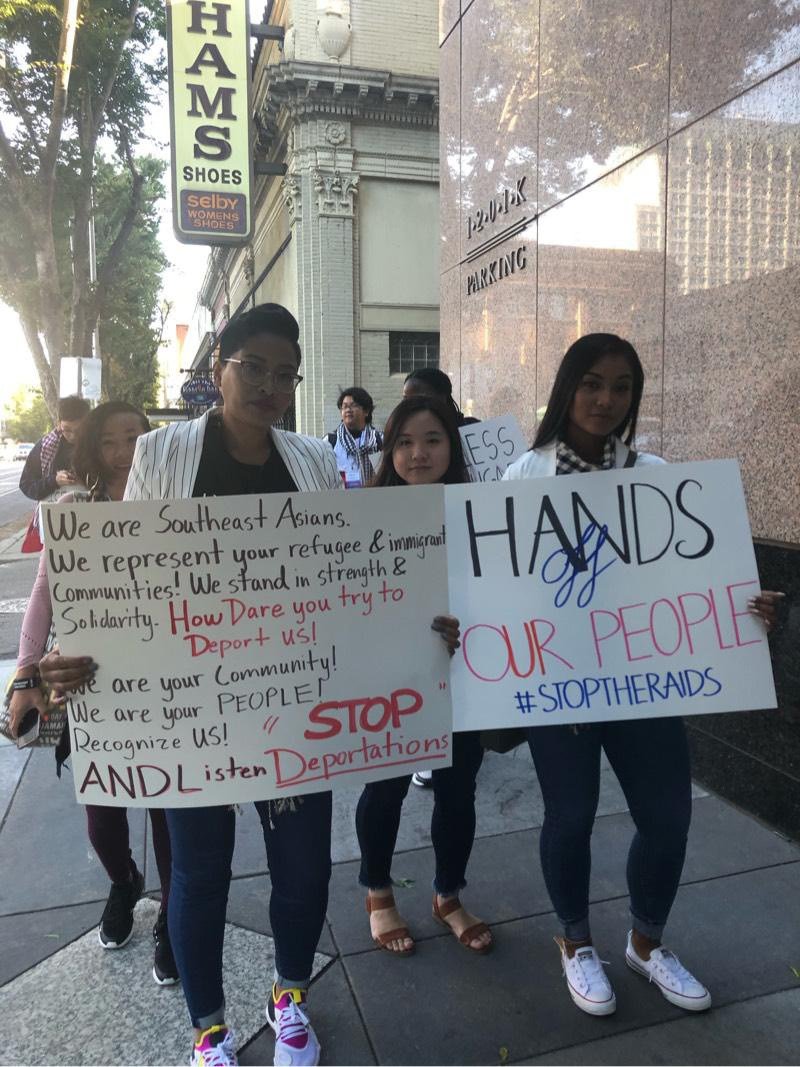 HAMS
SHOES
selby
WOMENS
SHOES
1·2·0·1·K
PARKING
ESS
We are Southeast Asians.
We represent your refugee & immigrant
Communities! We stand in strength &
Solidarity. How Dare you try to
Deport us!
We are your Community!
We are your PEOPLE!
Recognize US! "STOP"
AND Listen Deportations
HANDS
off
OUR PEOPLE
#STOPTHERAIDS